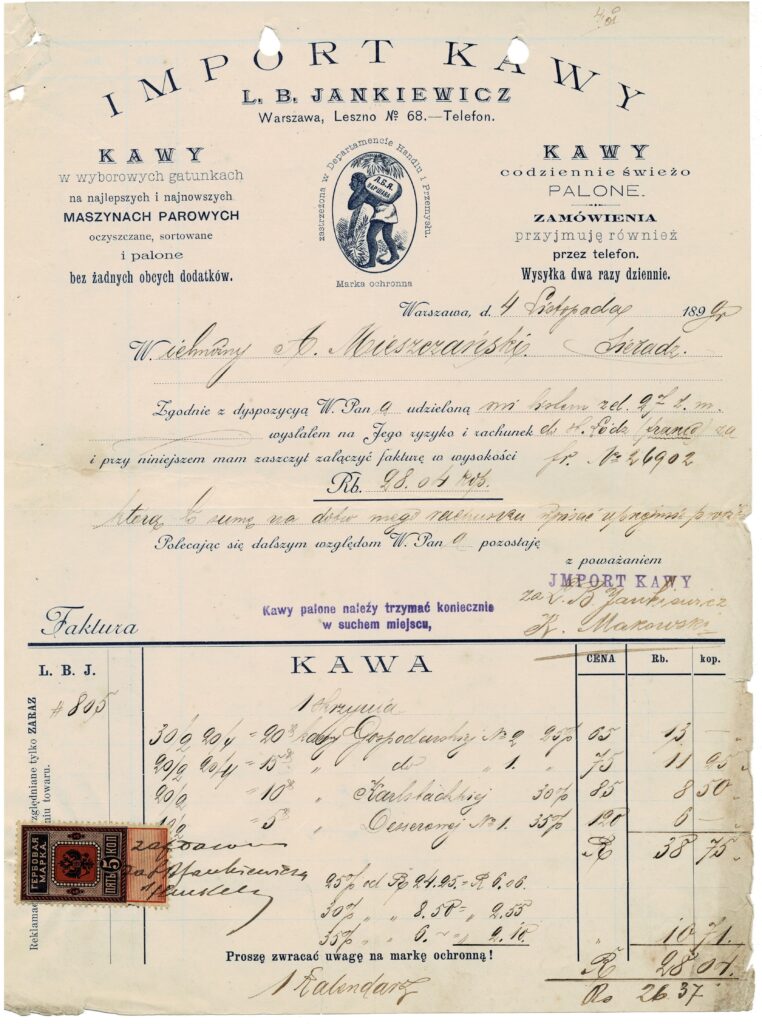 IMPORT KAWY
L. B. JANKIEWICZ
Warszawa, Leszno № 68.—Telefon.
KAWY
w wyborowych gatunkach
na najlepszych i najnowszych
MASZYNACH PAROWYCH
oczyszczane, sortowane
i palone
bez żadnych obcych dodatków.
zastrzeżona w Departamencie Handlu i Przemysłu.
Marka ochronna
KAWY
codziennie świeżo
PALONE.
ZAMÓWIENIA
przyjmuję również
przez telefon.
Wysyłka dwa razy dziennie.
Warszawa, d. 4 Listopada 1899 r
W. ielmożny A. Mieszczański. Sieradz.
Zgodnie z dyspozycyą W. Pana udzieloną mi
wysłałem na Jego ryzyko i rachunek do st. Łódź (franco) za
i przy niniejszem mam zaszczyt załączyć fakturę w wysokości fr. № 26902
Rb. 28.04 kop.
którą to sumę na dobro mego rachunku zpisać upraszam
Polecając się dalszym względom W. Pana pozostaję
z poważaniem
JMPORT KAWY
za L. B. Jankiewicz
K. Makowski
Kawy palone należy trzymać koniecznie
w suchem miejscu,
Faktura
L. B. J. KAWA CENA Rb. kop.
#805 1 skrzynia
30/2 20/4 = 20 kawy Gospodarskiej № 2 25% 65 13 —
20/2 20/4 = 15 " do " 1. " 75 11 25
20/2 10 " Karlsbadzkiej 30% 85 8 50
5 " Deserowej № 1. 35% 120 6 —
R 38 75
25% od R 24.25 = R 6.06.
30% " " 8.50 = " 2.55
35% " " 6. — " 2.10 " 10 71.
R 28 04.
Rs 26 37
Proszę zwracać uwagę na markę ochronną!
1 Kalendarz
względniane tylko ZARAZ
niu towaru.
Reklamac
ГЕРБОВАЯ
МАРКА
ПЯТЬ 5 КОП